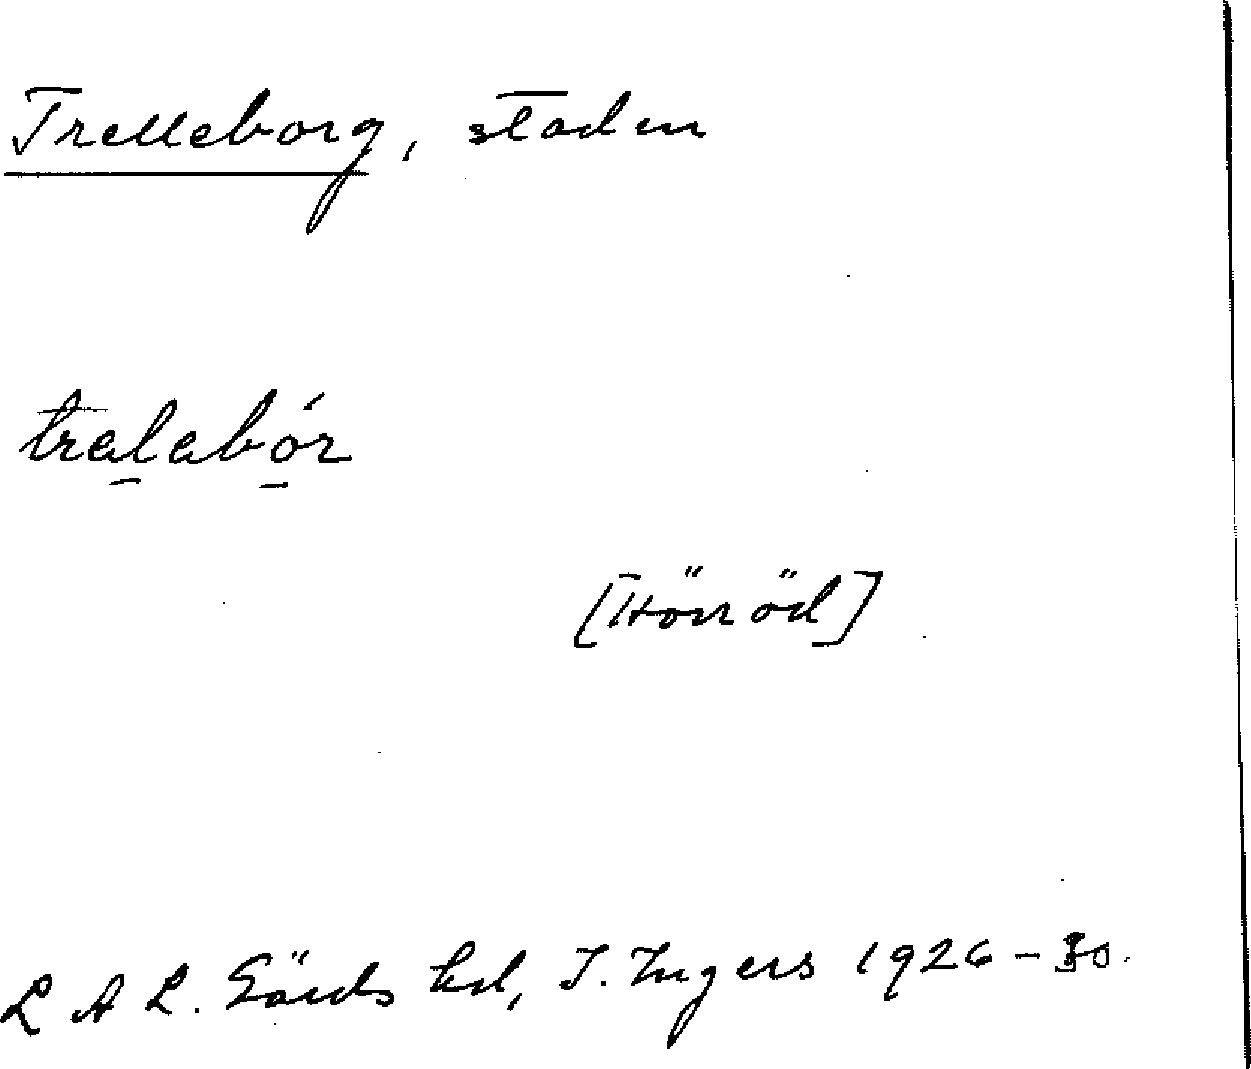 Trelleborg, staden
tralabór
[Hörröd]
L A L. Gärds hd, I. Ingers 1926-30.